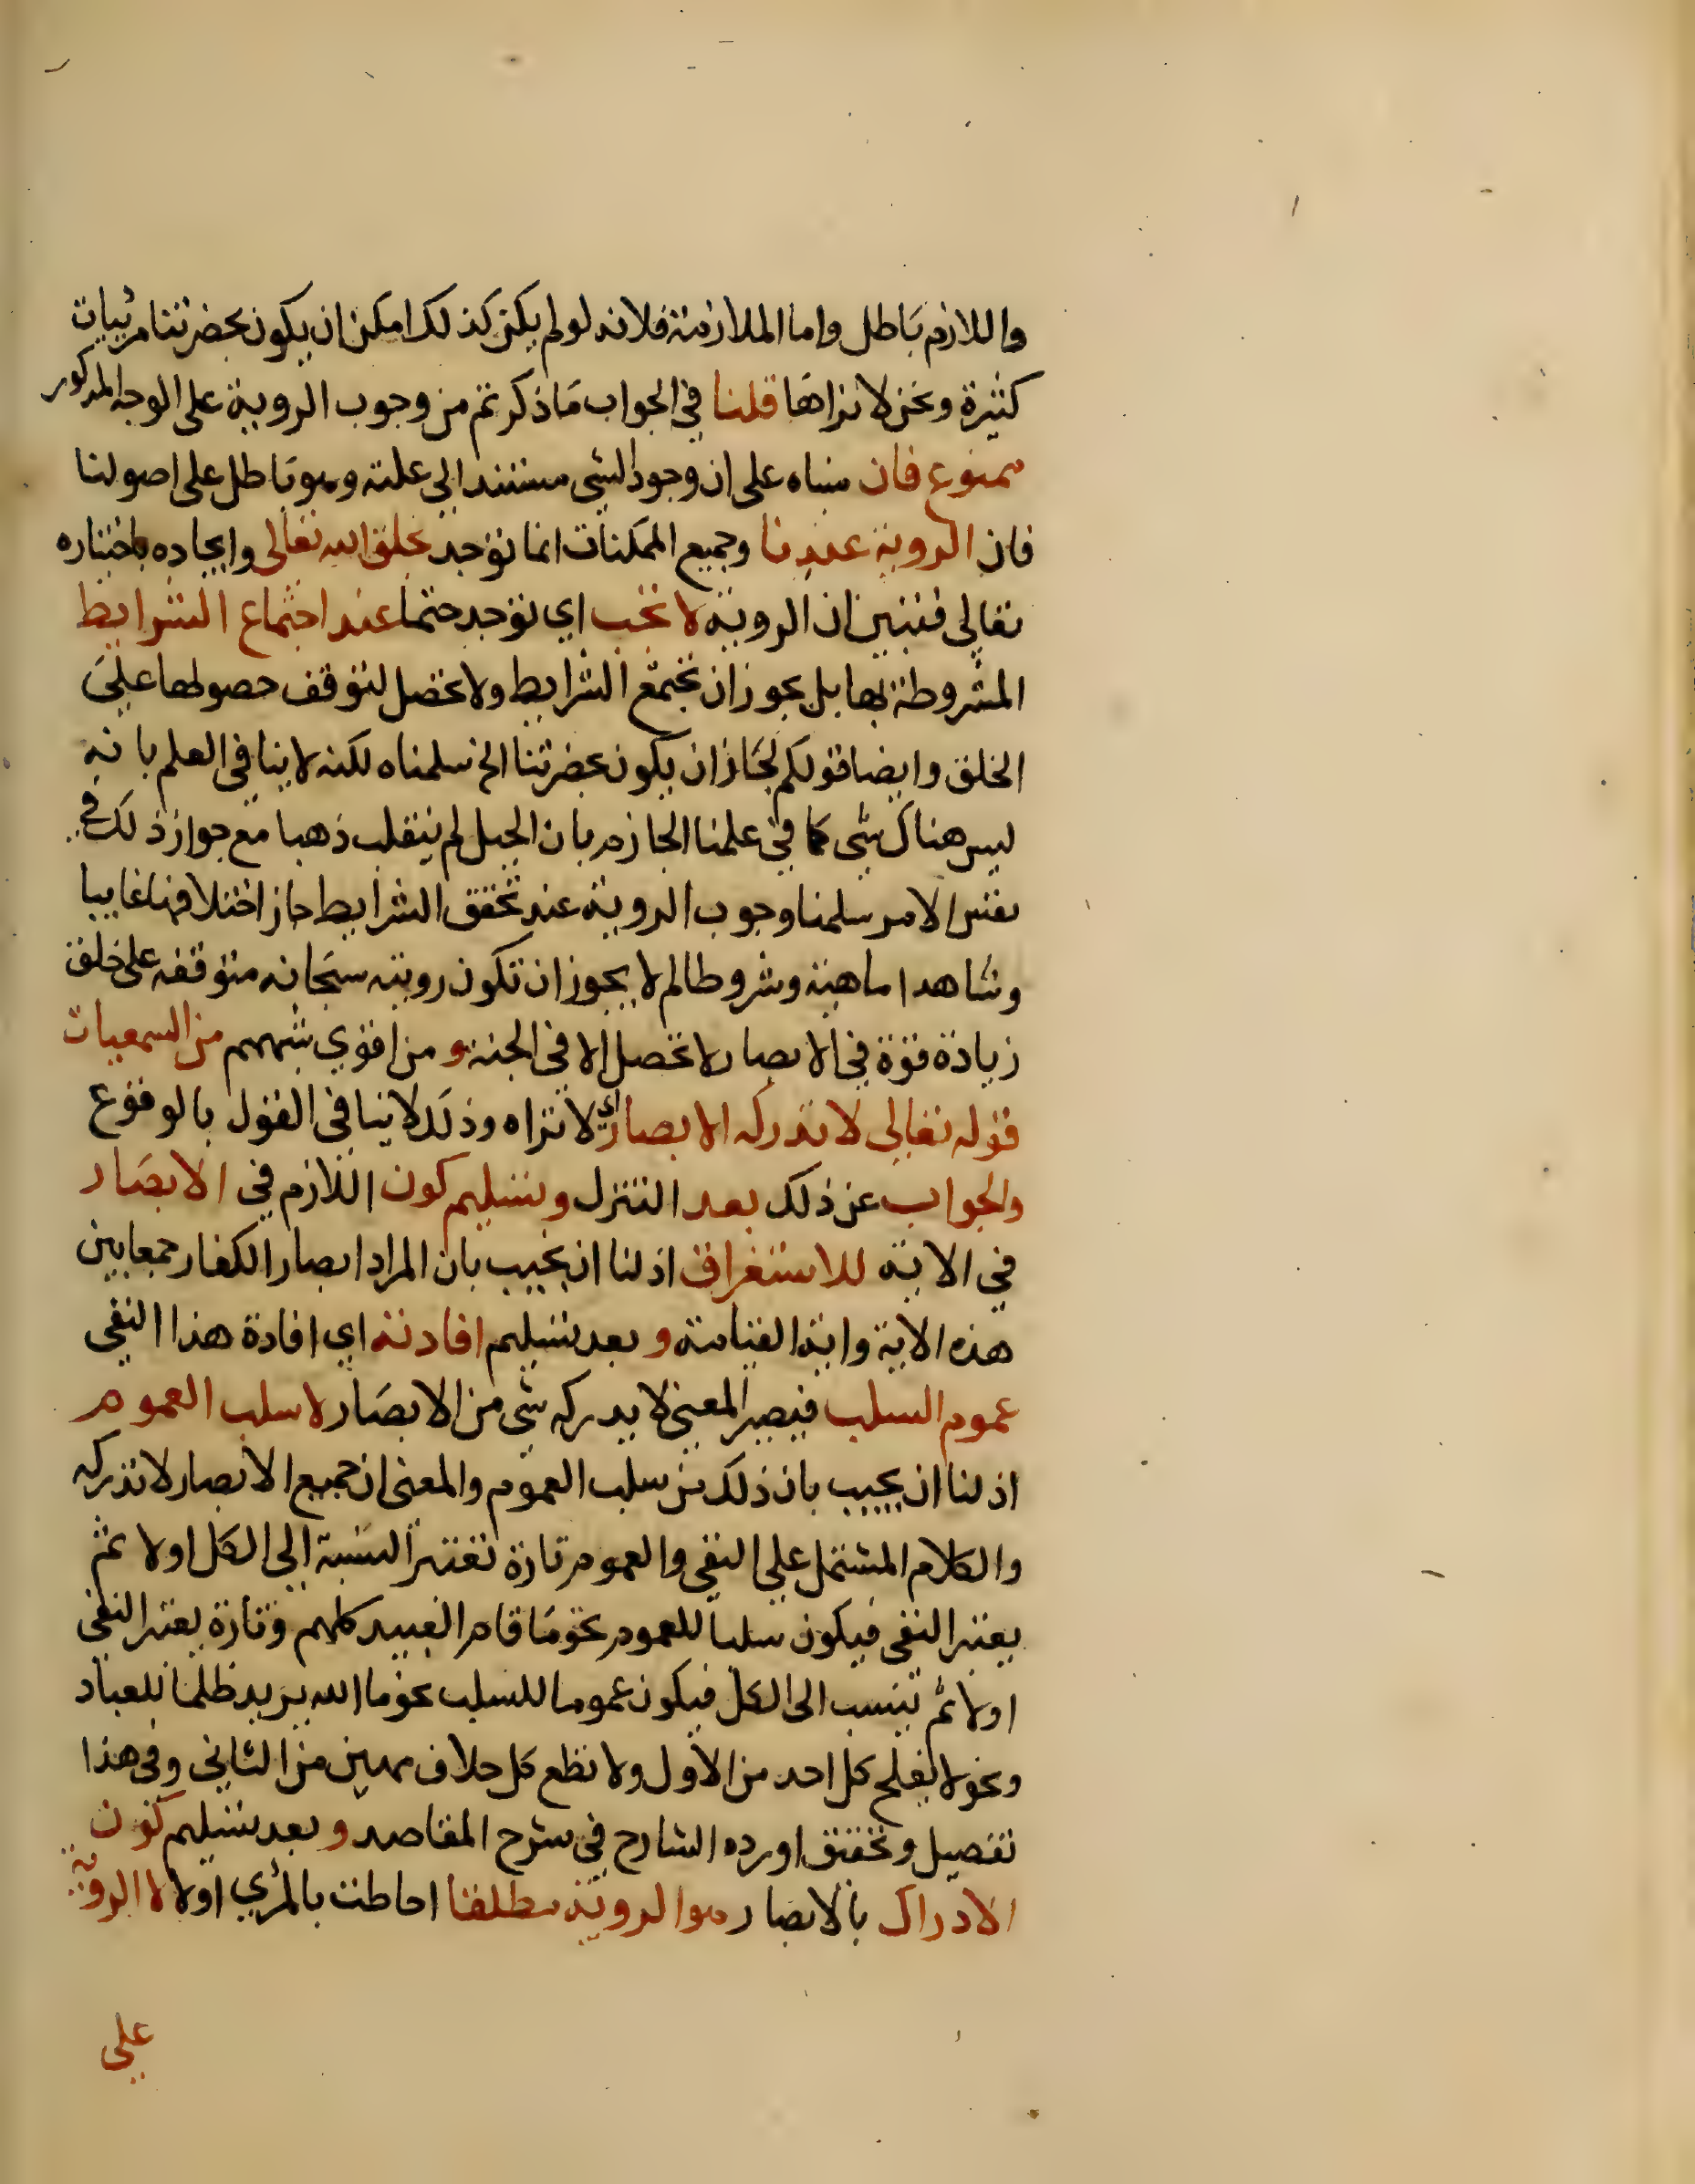 واللازم باطل واما الملازمة فلانه لو لم يكن كذلك امكن ان يكون بحضرتنا مرئيات
كثيرة ونحن لا نراها قلنا في الجواب ما ذكرتم من وجوب الروية على الوجه المذكور
ممنوع فان مبناه على ان وجود الشي مستند الي علته وهو باطل على اصولنا
فان الروية عندنا وجميع الممكنات انما توجد بخلق الله تعالى وايجاده باختياره
تعالي فتبين ان الروية لا تجب اي توجد حتما عند اجتماع الشرايط
المشروطة بها بل يجوز ان تجتمع الشرايط ولا تحصل لتوقف حصولها علي
الخلق وايضا قولكم لجاز ان يكون بحضرتنا الخ سلمناه لكنه لا ينافي العلم بانه
ليس هناك شي كما في علمنا الجازم بان الجبل لم ينقلب ذهبا مع جواز ذلك في
نفس الامر سلمنا وجوب الروية عند تحقق الشرايط جاز اختلافها غايبا
وشاهدا ماهية وشروطا لم لا يجوز ان تكون رويته سبحانه متوقفه على خلق
زيادة قوة في الابصار لا تحصل الا في الجنة و من اقوي شبههم من السمعيات
قوله تعالي لا تدركه الابصار اي لا تراه وذلك لا ينافي القول بالوقوع
والجواب عن ذلك بعد التنزل وتسليم كون اللازم في الابصار
في الاية للاستغراق اذ لنا ان نجيب بان المراد ابصار الكفار جمعا بين
هذه الاية واية القيامة و بعد تسليم افادته اي افادة هذا النفي
عموم السلب فيصير المعني لا يدركه شي من الابصار لا سلب العموم
اذ لنا ان نجيب بان ذلك من سلب العموم والمعنى ان جميع الابصار لا تدركه
والكلام المشتمل علي النفي والعموم تارة تعتبر النسبة الي الكل اولا ثم
يعتبر النفي فيكون سلبا للعموم نحو ما قام العبيد كلهم وتارة يعتبر النفي
اولا ثم تنسب الى الكل فيكون عموما للسلب نحو ما الله يريد ظلما للعباد
ونحو لا يفلح كل احد من الاول ولا تطع كل حلاف مهين من الثاني وفي هذا
تفصيل وتحقيق اورده الشارح في شرح المقاصد و بعد تسليم كون
الادراك بالابصار هو الروية مطلقا احاطت بالمرئي اولا لا الروية
علي